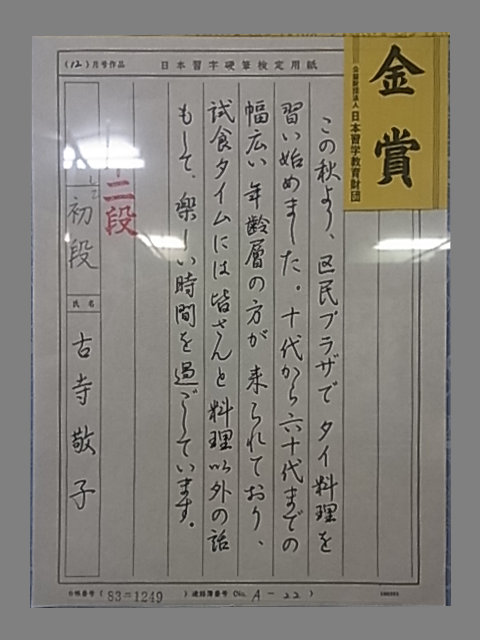 金賞
公益財団法人 日本習字教育財団
(12)月号作品
日本習字硬筆検定用紙
この秋より、区民プラザでタイ料理を
習い始めました。十代から六十代までの
幅広い年齢層の方が来られており、
試食タイムには皆さんと料理以外の話
もして、楽しい時間を過ごしています。
二段
初段
氏名
古寺敬子
台帳番号(83-1249)連絡簿番号(No. A-22)